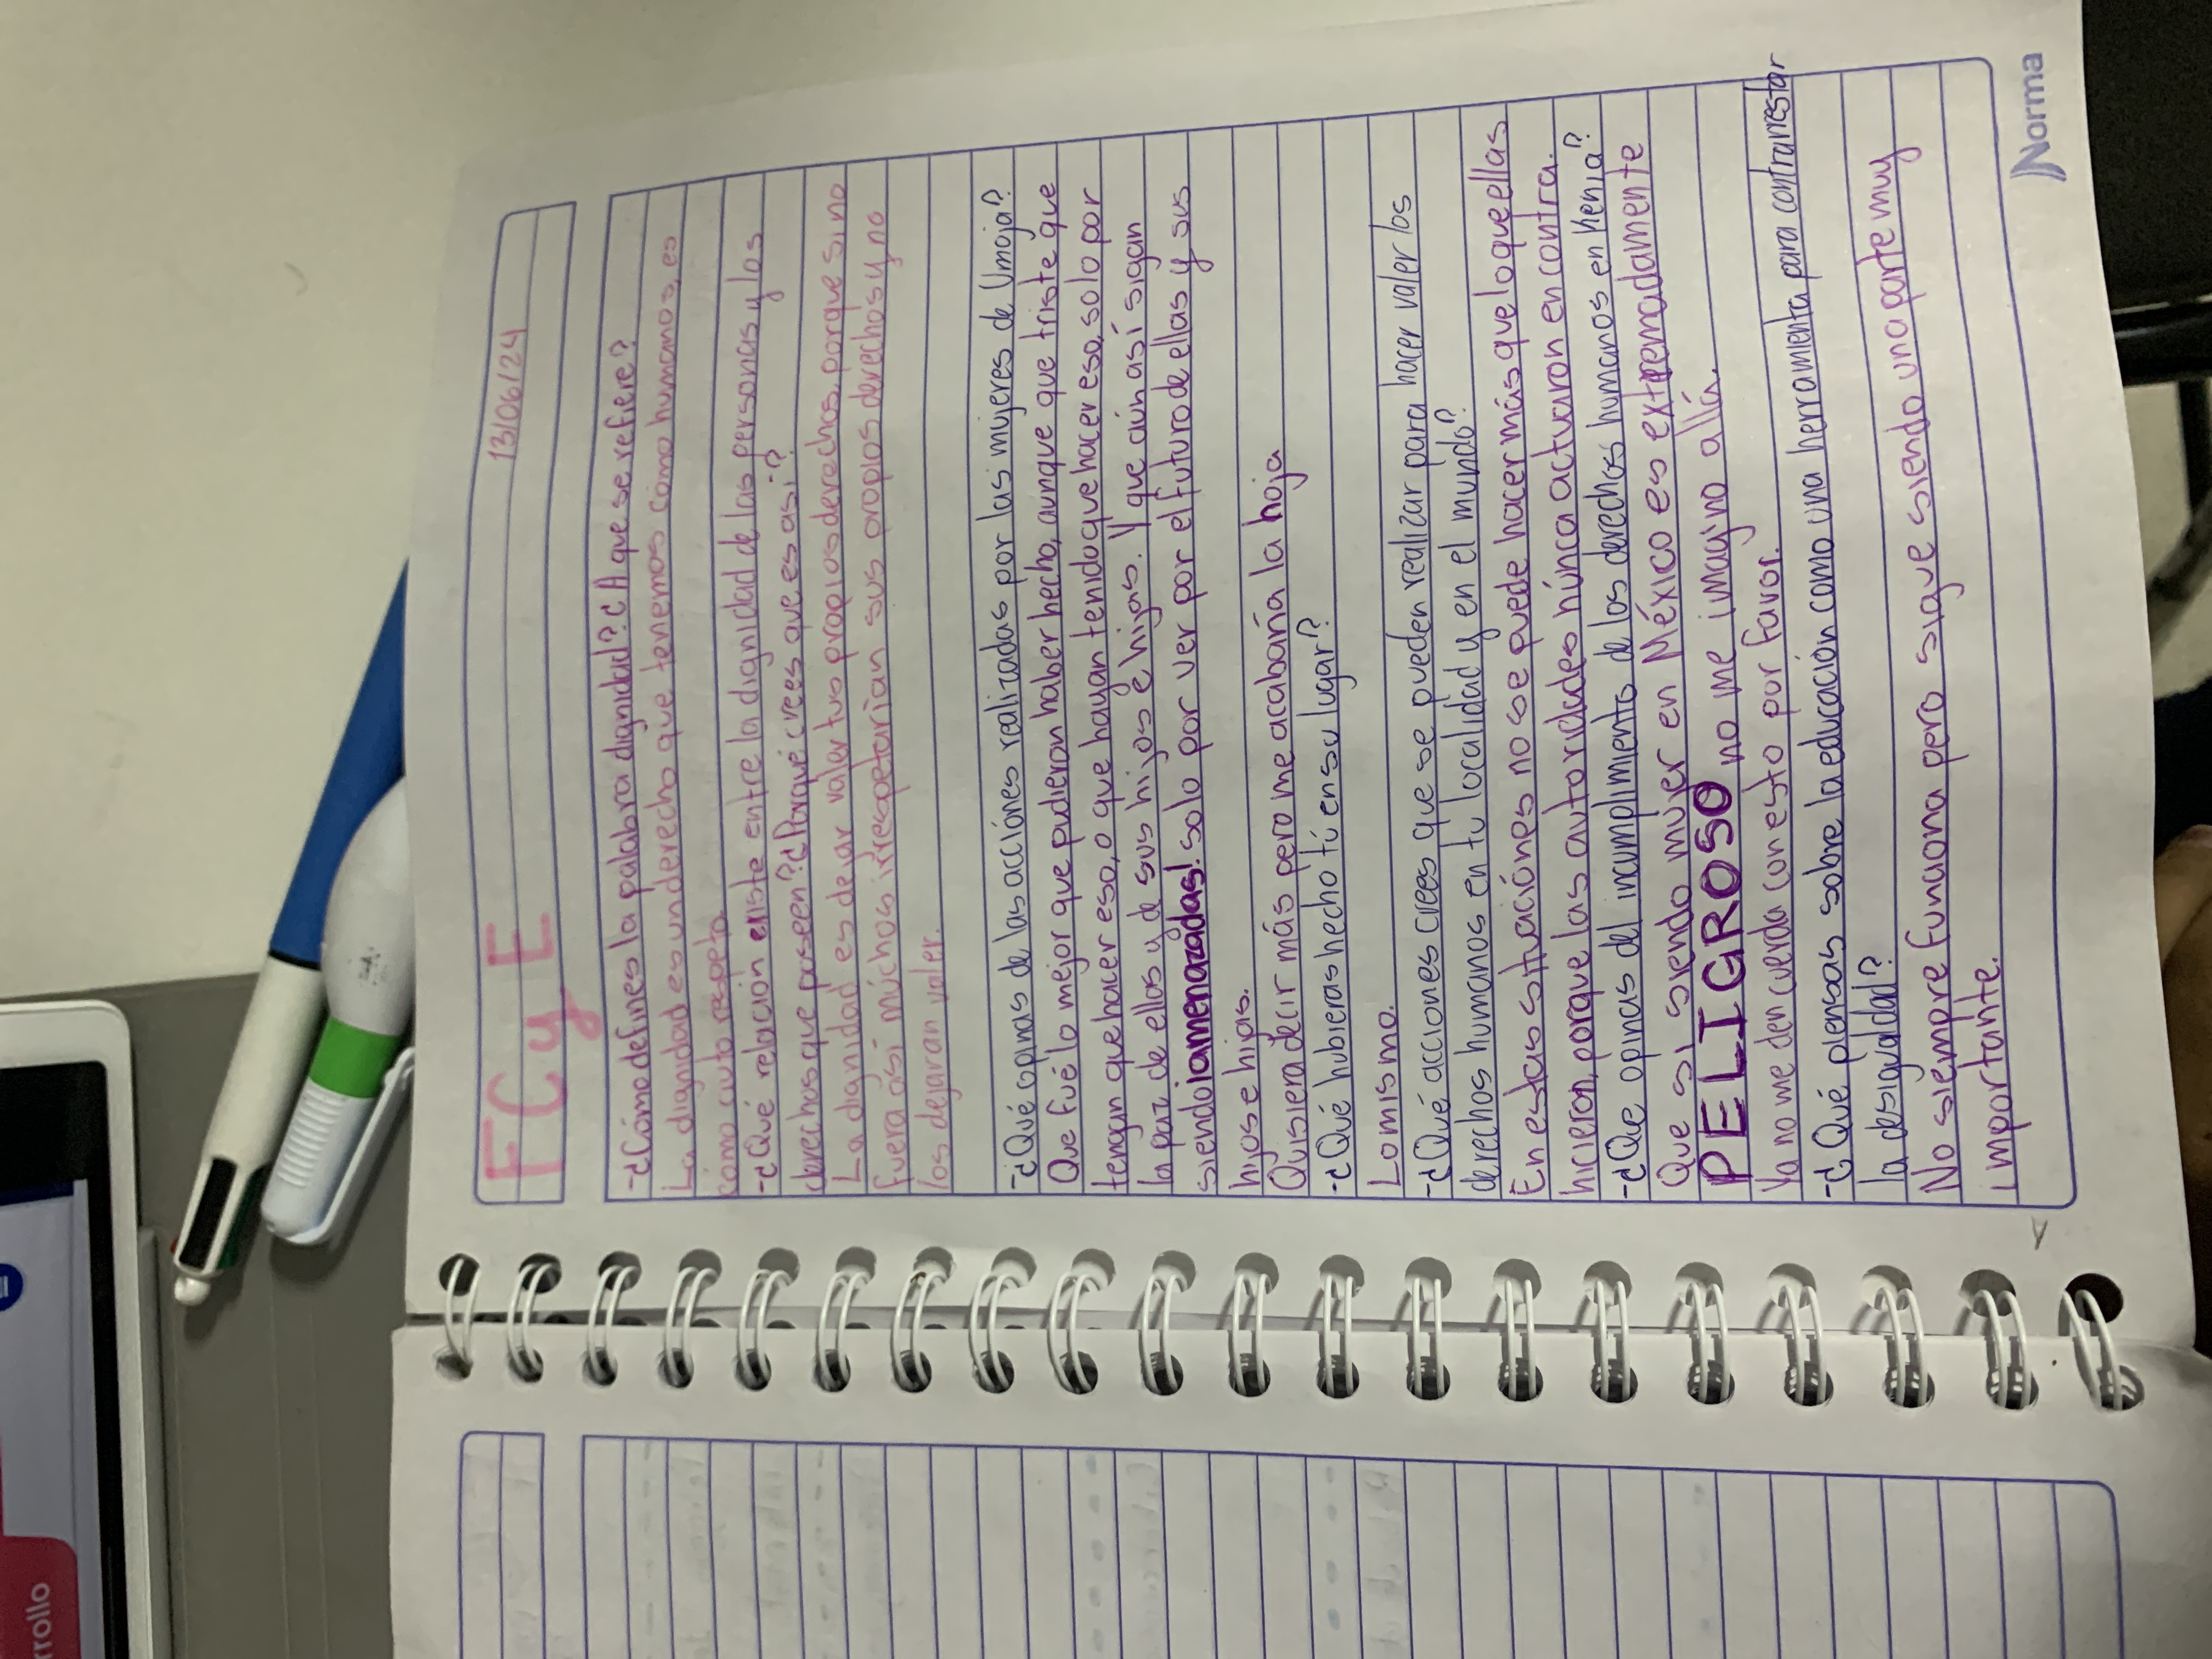 FCyE
13/06/24
-¿Cómo defines la palabra dignidad? ¿A que se refiere?
La dignidad es un derecho que tenemos cómo humanos, es
cómo auto respeto
-¿Qué relación existe entre la dignidad de las personas y los
derechos que poseen? ¿Porqué crees que es así?
La dignidad es dejar valer tus propios derechos, porque si no
fuera así múchos irrespetarían sus propios derechos y no
los dejaran valer.
-¿Qué opinas de las acciónes realizadas por las mujeres de Umoja?
Que fué lo mejor que pudieron haber hecho, aunque que triste que
tengan que hacer eso, o que hayan tenido que hacer eso, solo por
la paz de ellas y de sus hijos e hijas. Y que aún así sigan
siendo ¡amenazadas! solo por ver por el futuro de ellas y sus
hijos e hijas.
Quisiera decir más pero me acabaría la hoja
-¿Qué hubieras hecho tú en su lugar?
Lo mismo.
-¿Qué acciones crees que se pueden realizar para hacer valer los
derechos humanos en tu localidad y en el mundo?
En estas situaciónes no se puede hacer más que lo que ellas
hicieron, porque las autoridades núnca actuaron en contra.
-¿Que opinas del incumplimiento de los derechos humanos en Kenia?
Que si siendo mujer en México es extremadamente
PELIGROSO no me imagino allá.
Ya no me den cuerda con esto por favor.
-¿Qué piensas sobre la educación como una herramienta para contrarrestar
la desigualdad?
No siempre funciona pero sigue siendo una parte muy
importante.
Norma
rrollo